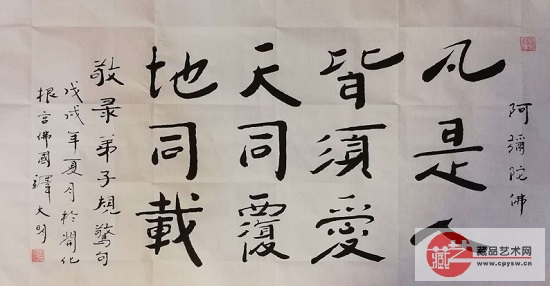 阿彌陀佛
凡是人
皆須愛
天同覆
地同載
敬录弟子规警句
戊戌年夏月於開化
根宫佛國釋大明
藏品艺术网
www.cpysw.cn